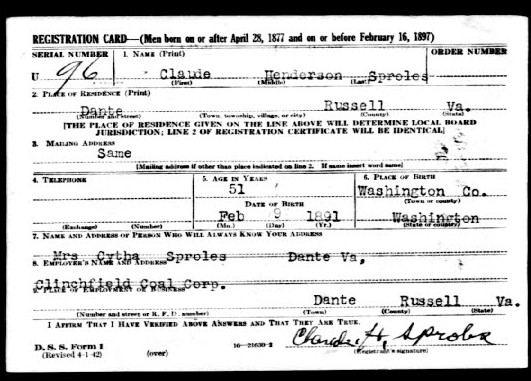 REGISTRATION CARD—(Men born on or after April 28, 1877 and on or before February 16, 1897)
SERIAL NUMBER 1. NAME (Print) ORDER NUMBER
U 96 Claude Henderson Sproles
(First) (Middle) (Last)
2. PLACE OF RESIDENCE (Print)
Dante Russell Va.
(Number and street) (Town, township, village, or city) (County) (State)
[THE PLACE OF RESIDENCE GIVEN ON THE LINE ABOVE WILL DETERMINE LOCAL BOARD
JURISDICTION; LINE 2 OF REGISTRATION CERTIFICATE WILL BE IDENTICAL]
3. MAILING ADDRESS
Same
[Mailing address if other than place indicated on line 2. If same insert word same]
4. TELEPHONE 5. AGE IN YEARS 6. PLACE OF BIRTH
51 Washington Co.
DATE OF BIRTH (Town or county)
Feb 9 1891 Washington
(Exchange) (Number) (Mo.) (Day) (Yr.) (State or country)
7. NAME AND ADDRESS OF PERSON WHO WILL ALWAYS KNOW YOUR ADDRESS
Mrs Cytha Sproles Dante Va,
8. EMPLOYER'S NAME AND ADDRESS
Clinchfield Coal Corp.
9. PLACE OF EMPLOYMENT OR BUSINESS
Dante Russell Va.
(Number and street or R. F. D. number) (Town) (County) (State)
I AFFIRM THAT I HAVE VERIFIED ABOVE ANSWERS AND THAT THEY ARE TRUE.
D. S. S. Form 1 Claude H. Sproles
(Revised 4-1-42) (over) 16—21630-2 (Registrant's signature)